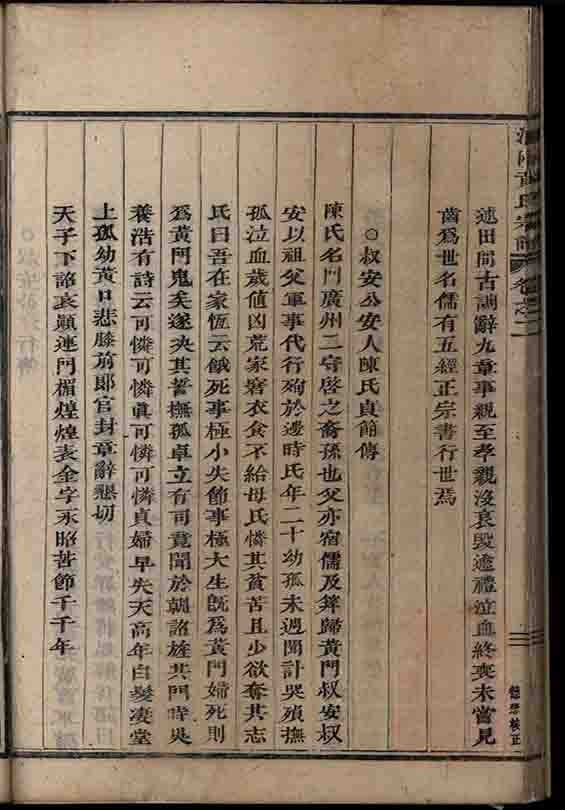 黃氏宗譜 卷之二
述田間古調辭九章事親至孝親沒哀毀逾禮泣血終喪未嘗見
齒爲世名儒有五經正宗書行世焉
○叔安公安人陳氏貞節傳
陳氏名門廣州二守啓之裔孫也父亦宿儒及筓歸黃門叔安叔
安以祖父軍事代行殉於邊時氏年二十幼孤未週聞計哭殞撫
孤泣血歲値凶荒家窘衣食不給母氏憐其貧苦且少欲奪其志
氏曰吾在家恆云餓死事極小失節事極大生旣爲黃門婦死則
爲黃門鬼矣遂决其誓撫孤卓立有司竟聞於朝詔旌其門時吳
養浩有詩云可憐可憐眞可憐可憐貞婦早失天高年白髮凄堂
上孤幼黃口悲膝前郞官封章辭懇切
天子下詔哀顚連門楣煌煌表金字永昭苦節千千年
校正